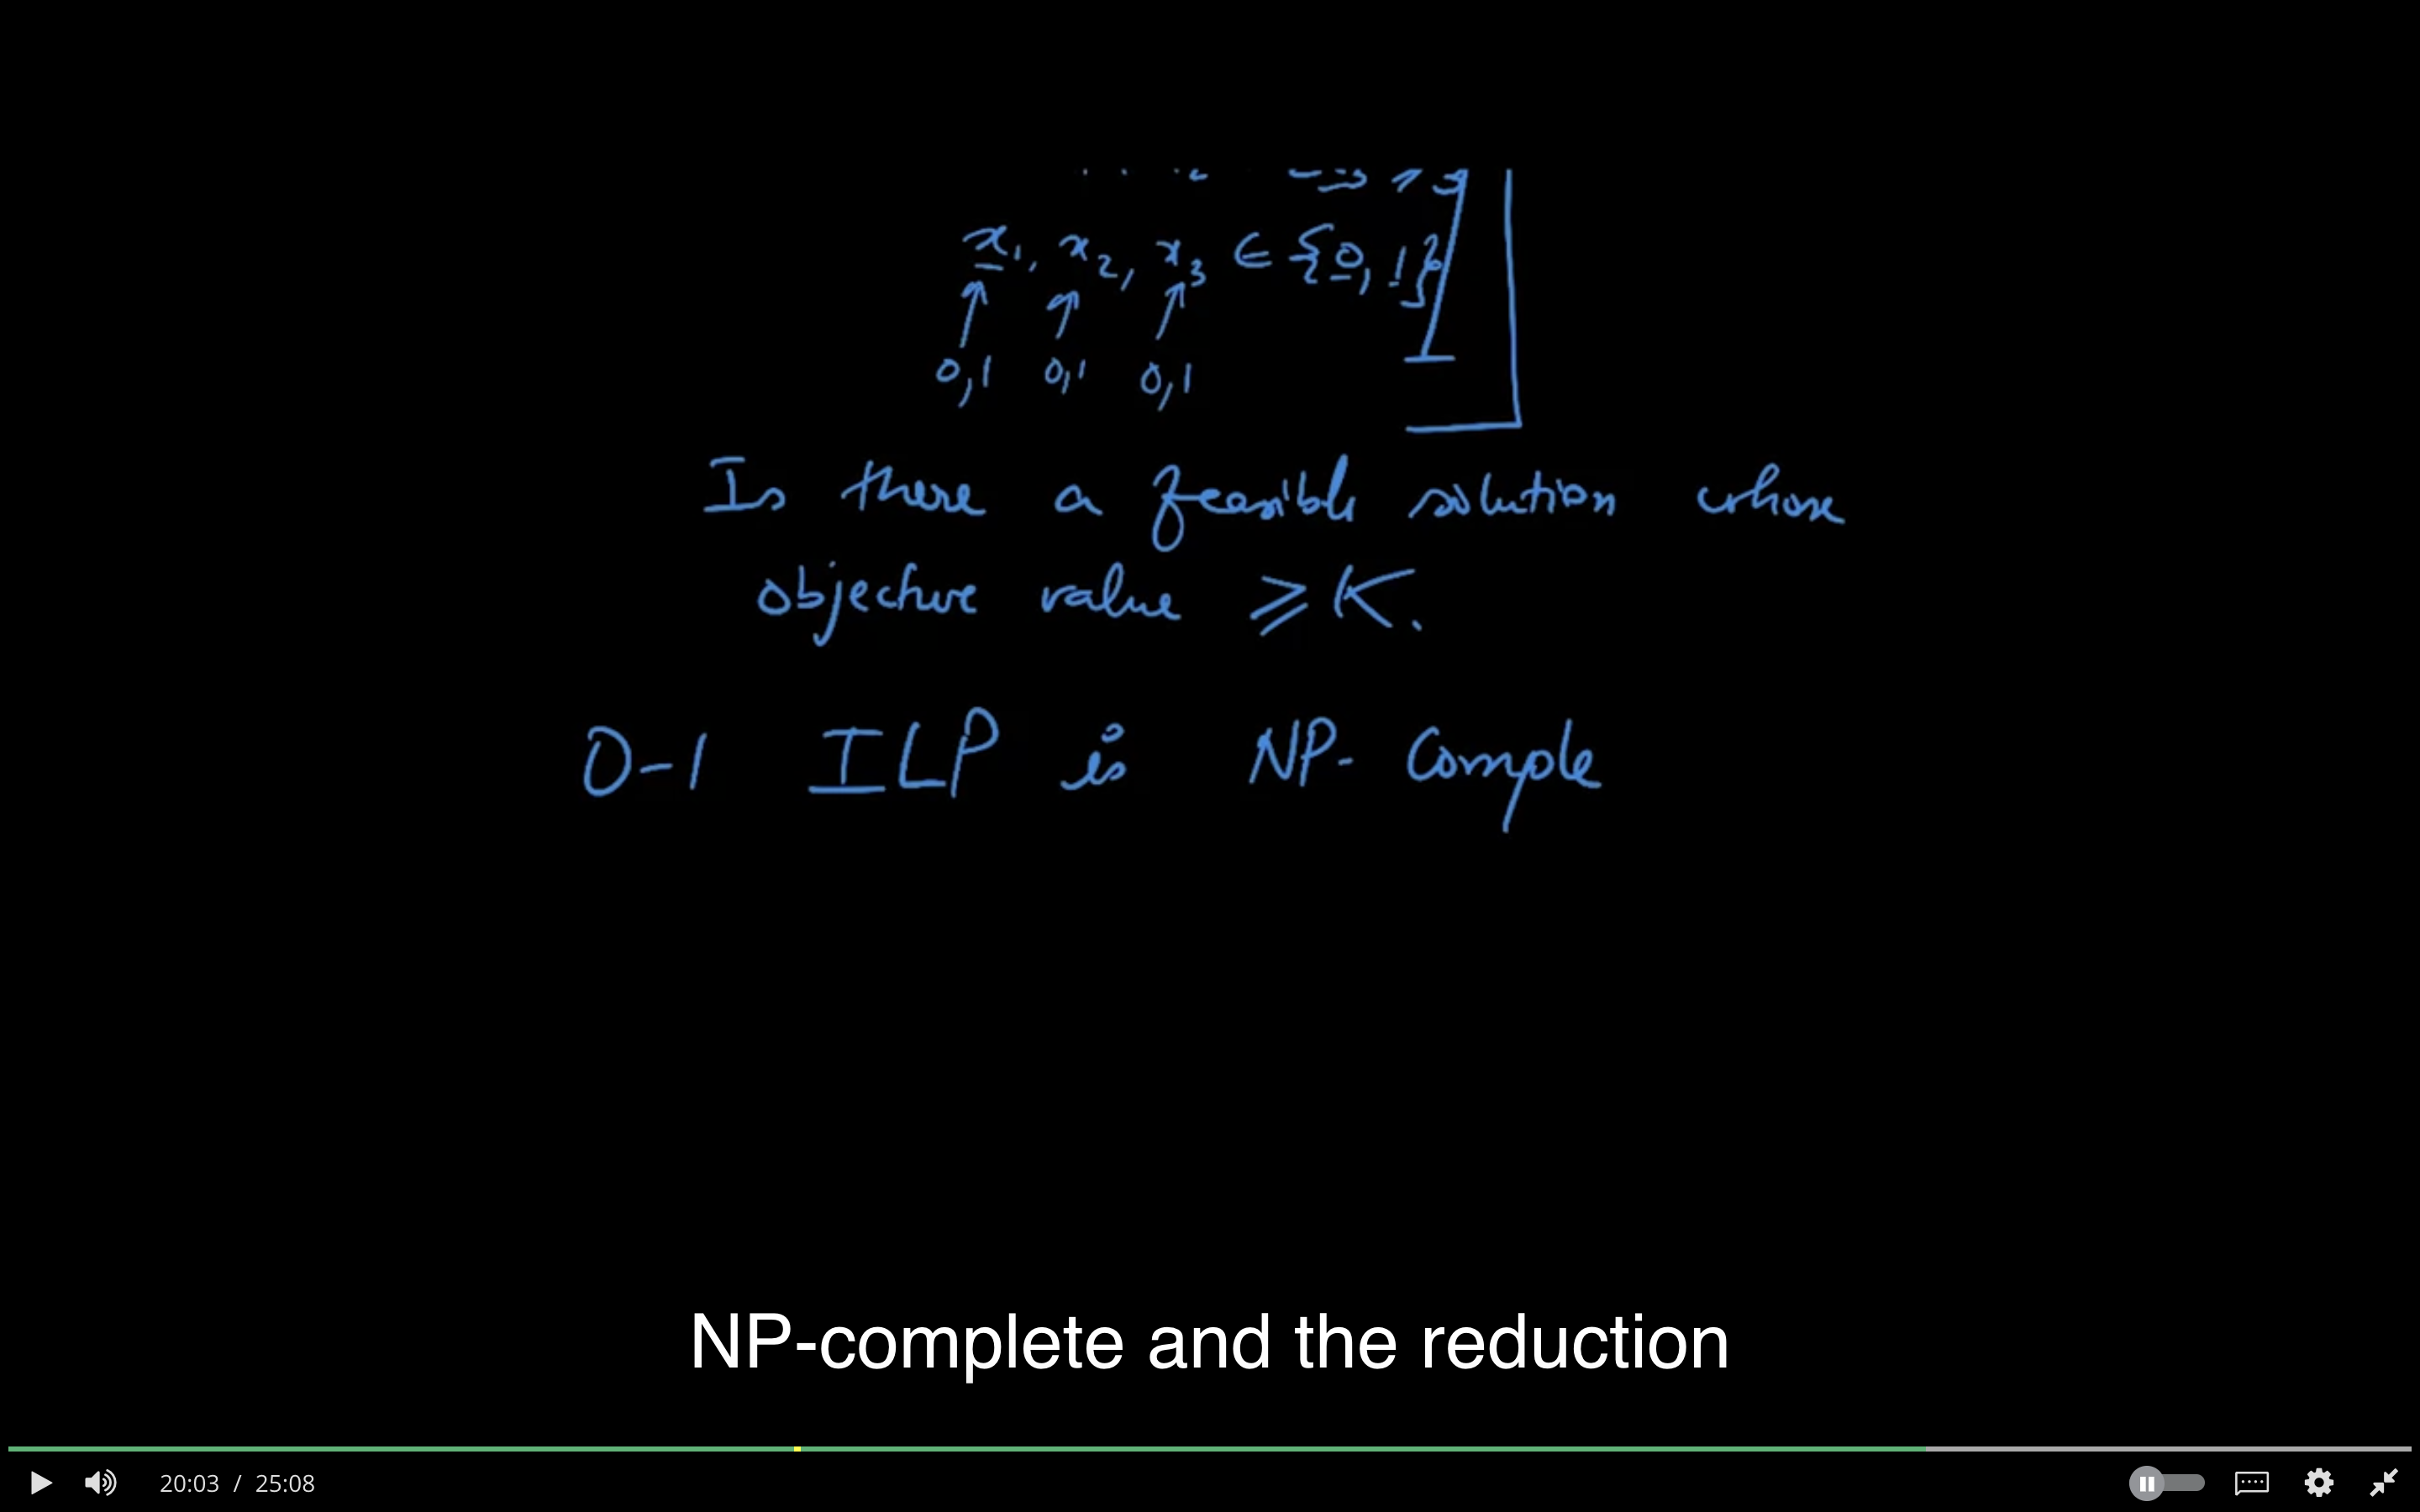 x₁, x₂, x₃ ∈ {0, 1}
0,1 0,1 0,1
Is there a feasible solution whose
objective value ≥ K.
0-1 ILP is NP- Comple
NP-complete and the reduction
20:03 / 25:08